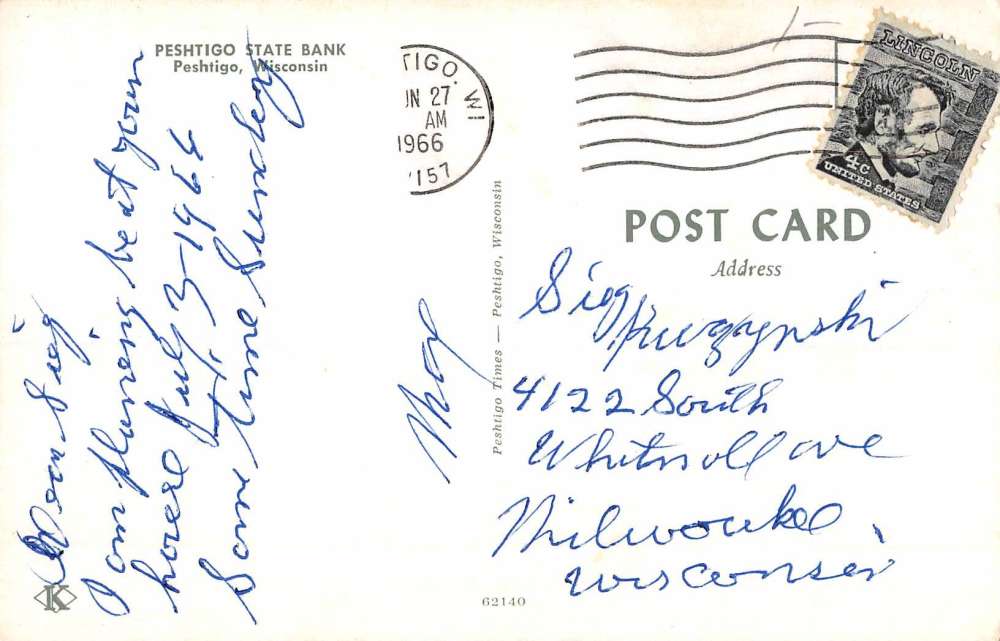 PESHTIGO STATE BANK
Peshtigo, Wisconsin
Dear Sieg
I am planing be at your
house July 3-1966
Some time Sunday
TIGO. WI
UN 27
AM
1966
157
LINCOLN
4c
UNITED STATES
POST CARD
Address
Sieg
4122 South
Whitnall ave
Milwaukee,
Wisconsin
Peshtigo Times — Peshtigo, Wisconsin
K
62140